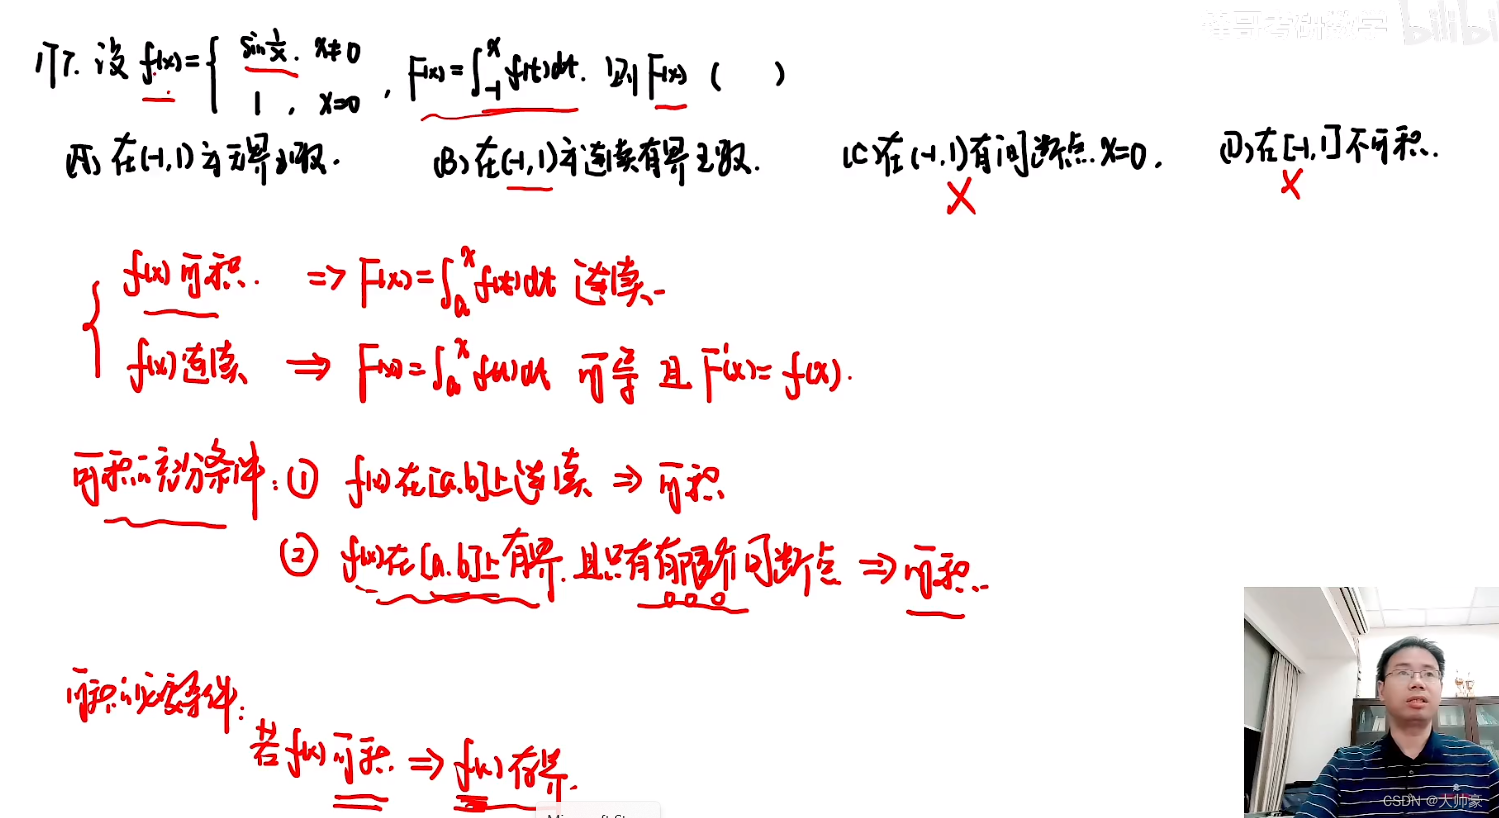 峰哥考研数学 bilibili
177. 设 f(x)={ sin 1/x, x≠0
1, x=0 , F(x)=∫_{-1}^{x} f(t)dt. 则 F(x) ( )
(A) 在(-1,1)为无界函数. (B) 在(-1,1)为连续有界函数. (C) 在(-1,1)有间断点 x=0. (D) 在[-1,1]不可积.
× ×
f(x)可积. => F(x)=∫_a^x f(t)dt 连续.
f(x)连续 => F(x)=∫_a^x f(t)dt 可导 且 F'(x)=f(x).
可积的充分条件: ① f(x)在[a,b]上连续 => 可积
② f(x)在[a,b]上有界, 且只有有限个间断点 => 可积.
可积的必要条件:
若 f(x)可积 => f(x)有界.
CSDN @大帅豪